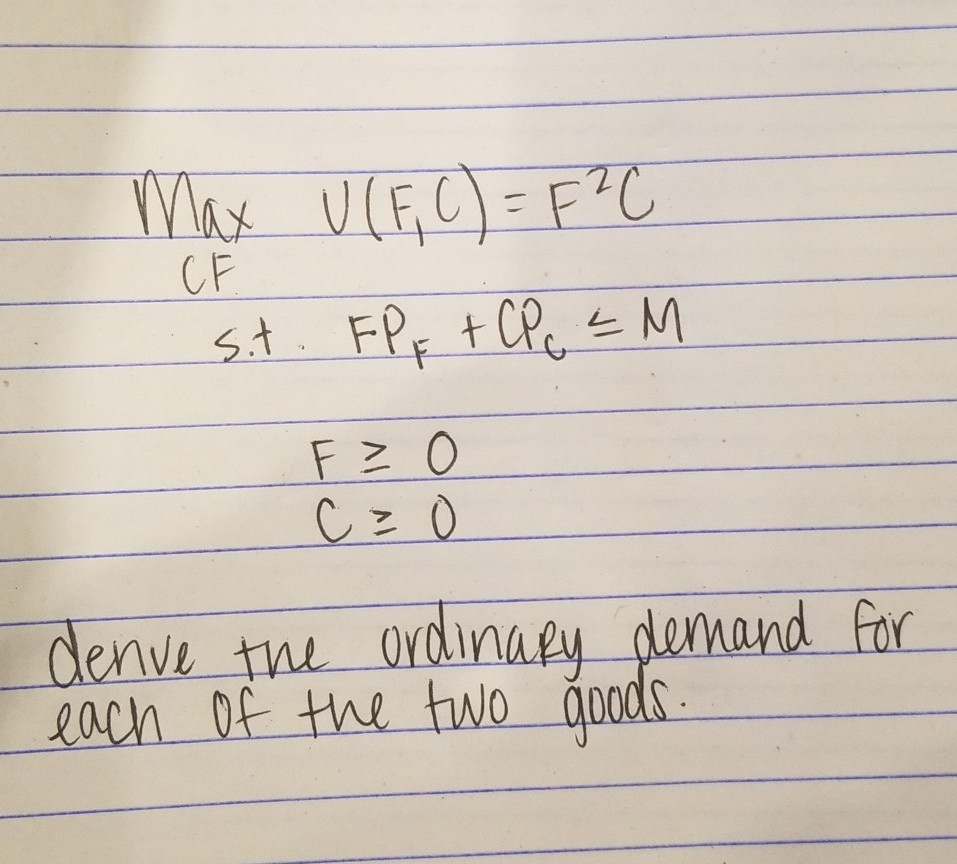 Max U(F,C) = F²C
CF
s.t. FP_F + CP_C ≤ M
F ≥ 0
C ≥ 0
derive the ordinary demand for
each of the two goods.